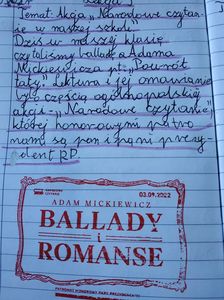 Temat: Akcja „Narodowe czytanie
w naszej szkole.
Dziś w naszej klasie
czytaliśmy balladę Adama
Mickiewicza pt. „Powrót
taty". Lektura i jej omawianie
było częścią ogólnopolskiej
akcji „Narodowe czytanie"
której honorowymi patro-
nami są pan i pani prezy-
dent RP.
NARODOWE
CZYTANIE
03.09.2022
ADAM MICKIEWICZ
BALLADY
i
ROMANSE
PATRONAT HONOROWY PARY PREZYDENCKIEJ